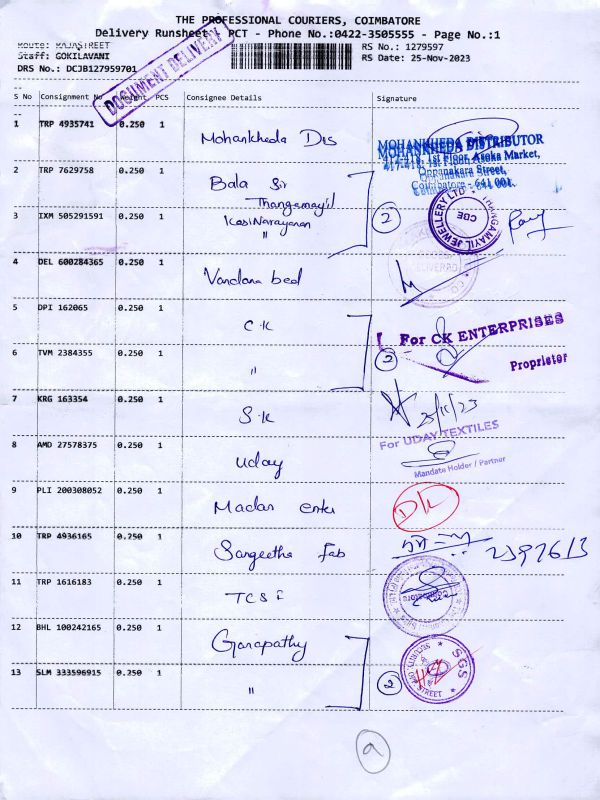 THE PROFESSIONAL COURIERS, COIMBATORE
Delivery Runsheet PCT - Phone No.:0422-3505555 - Page No.:1
Route: RAJASTREET RS No.: 1279597
Staff: GOKILAVANI RS Date: 25-Nov-2023
DRS No.: DCJB127959701
DOCUMENT DELIVERY
S No Consignment No Weight PCS Consignee Details Signature
1 TRP 4935741 0.250 1 Mohankheda Dis
MOHANKHEDA DISTRIBUTOR
417-418, 1st Floor, Asoka Market,
Oppanakara Street,
Coimbatore - 641 001.
2 TRP 7629758 0.250 1 Bala Sir
Thangamayil
3 IXM 505291591 0.250 1 KasiNarayanan
" 2
THANGAMAYIL JEWELLERY LTD
CBE
4 DEL 600284365 0.250 1 Vandana bed
5 DPI 162065 0.250 1 C.K
For CK ENTERPRISES
6 TVM 2384355 0.250 1 " 2
Proprietor
7 KRG 163354 0.250 1 S.K 25/11/23
For UDAY TEXTILES
8 AMD 27578375 0.250 1 Uday
Mandate Holder / Partner
9 PLI 200308052 0.250 1 Madan enter
10 TRP 4936165 0.250 1 Sangeetha Fab
11 TRP 1616183 0.250 1 TCS
12 BHL 100242165 0.250 1 Ganapathy
13 SLM 333596915 0.250 1 " 2
SGS
STREET